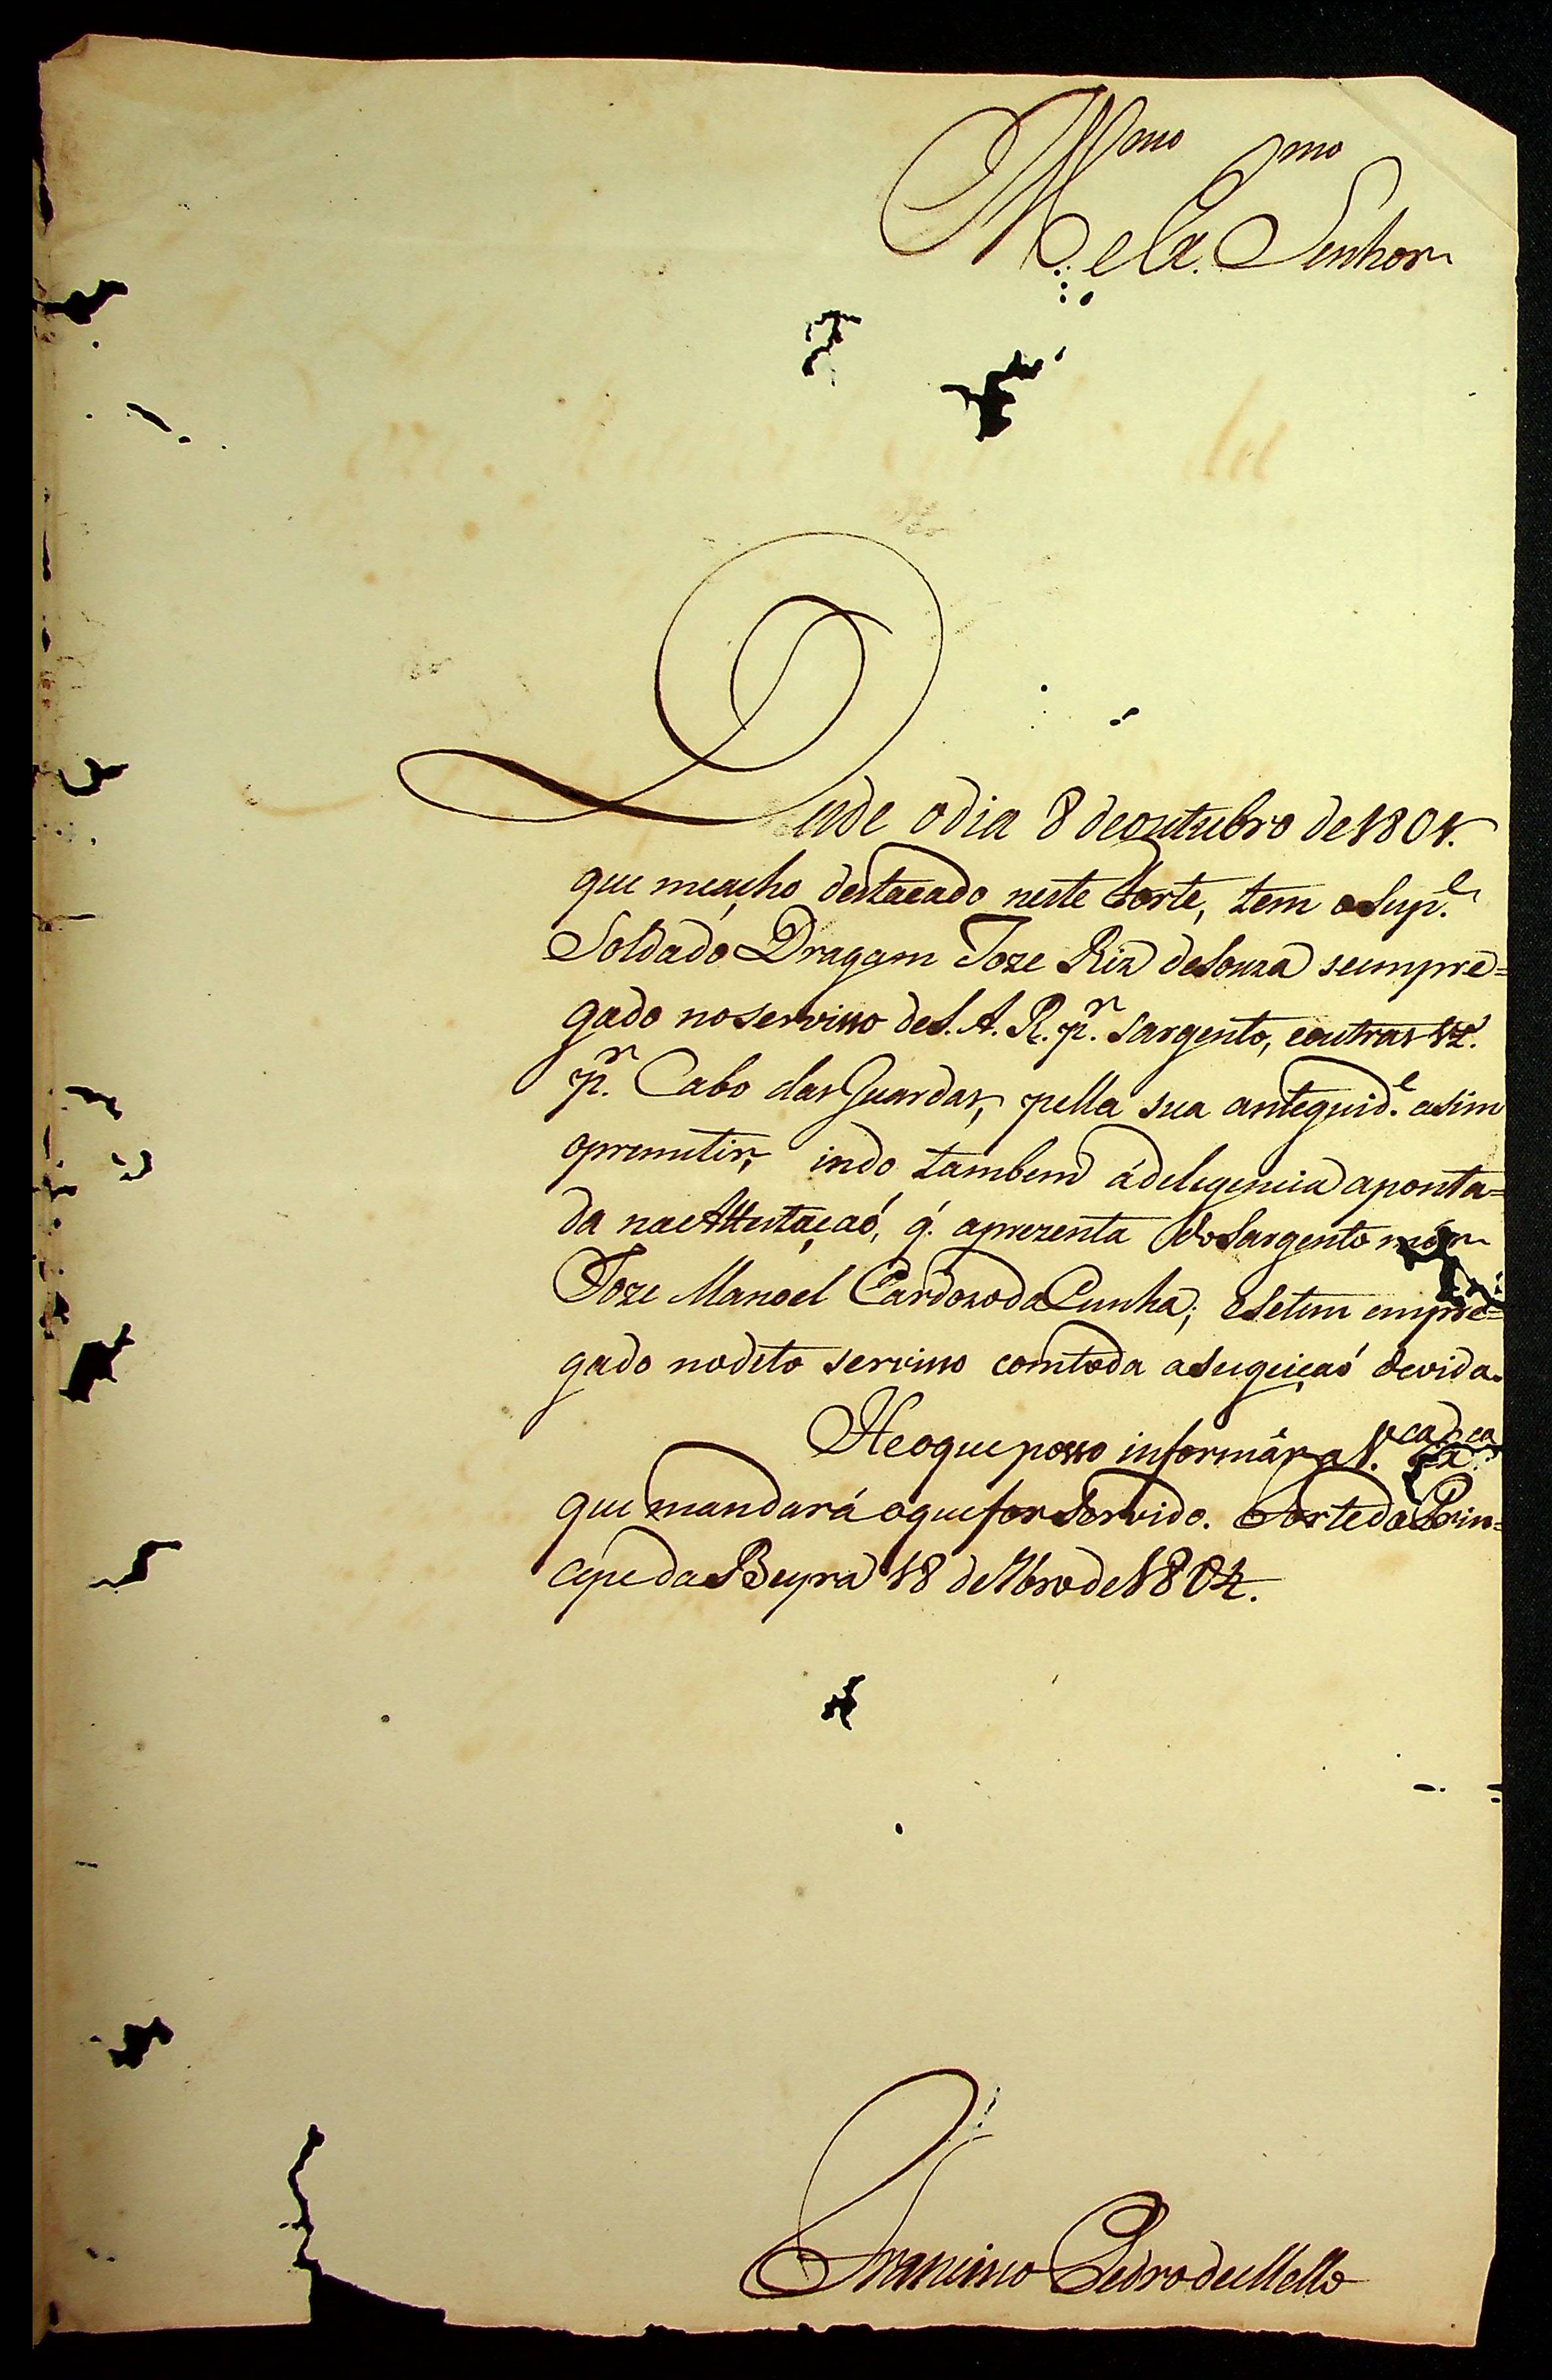 Ill.mo e Ex.mo Senhor
Desde o dia 8 de outubro de 1801.
que me acho destacado neste Forte, tem o Sup.e
Soldado Dragam Joze Riz de Souza se empre=
gado no servisso de S. A. R. p.r Sargento, e outras vz.s
p.r Cabo das Guardas, pella sua anteguid.e asim
o premetir, indo tambem á delegencia aponta=
da na Attestaçaó, q̃. aprezenta do Sargento mór
Joze Manoel Cardozo da Cunha; e se tem empre=
gado no dito servisso com toda a sugeiçaó devida.
He o que posso informár a V.ca Ex.ca
que mandará o que for Servido. Forte do Prin=
cipe da Beyra 18 de 9bro de 1804.
Francisco Pedro de Mello